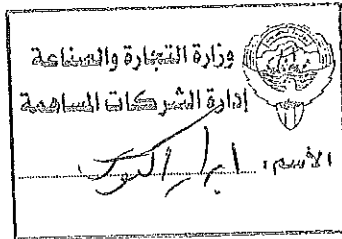 وزارة التجارة والصناعة
إدارة الشركات المساهمة
الأسم: